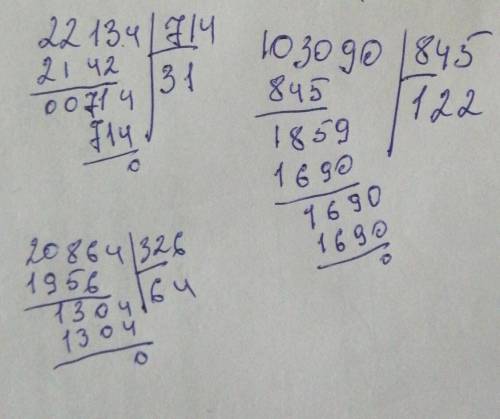 22134 714
2142 31
00714
714
0
103090 845
845 122
1859
1690
1690
1690
0
20864 326
1956 64
1304
1304
0